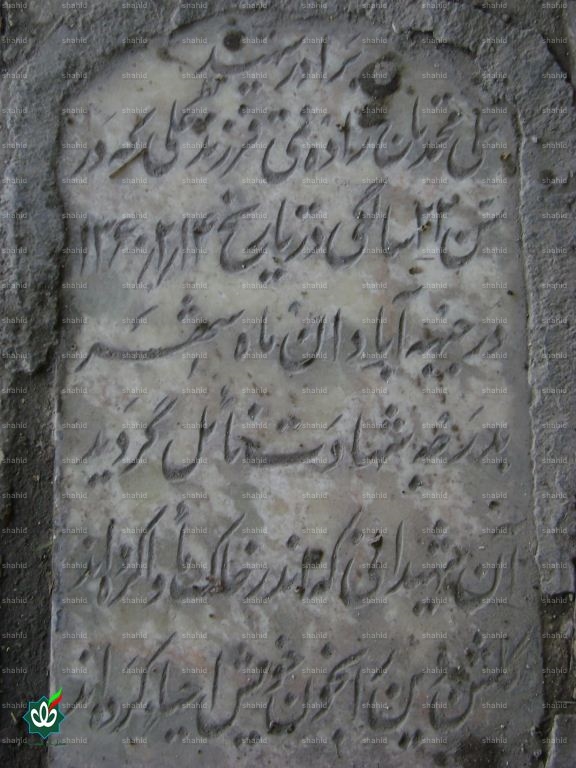 برادر شهید
علی محمد بان زاده نمی فرزند علی که در
سن ۲۲ سالگی در تاریخ ۱۳۶۰٫۲٫۱۴
در جبهه آبادان ماه شهر
بدرجه شهادت نائل گردید
این شهیدانی که اندر خاک مأوا کرده‌اند
دین بخون خویش احیا کرده‌اند